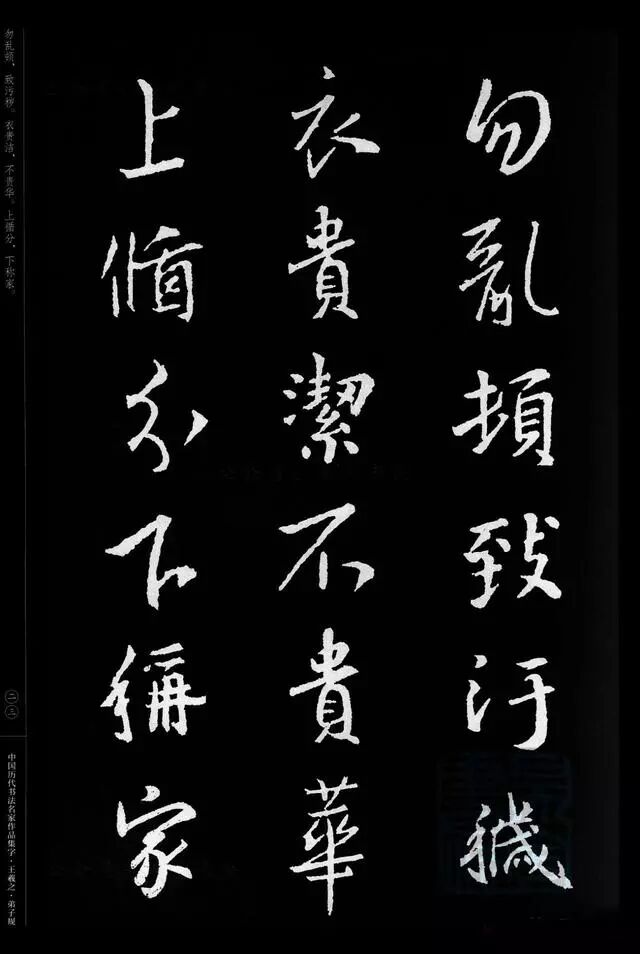 勿亂頓致汙穢
衣貴潔不貴華
上循分下稱家
勿乱顿，致污秽。衣贵洁，不贵华。上循分，下称家。
二三
中国历代书法名家作品集字·王羲之·弟子规